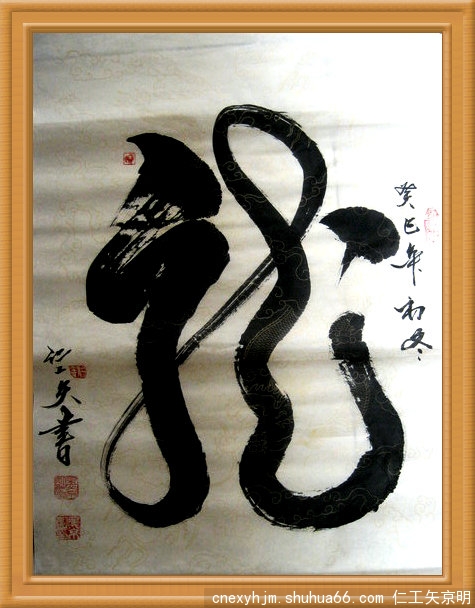 癸巳年初冬
龍
仁工矢書
cnexyhjm.shuhua66.com 仁工矢京明